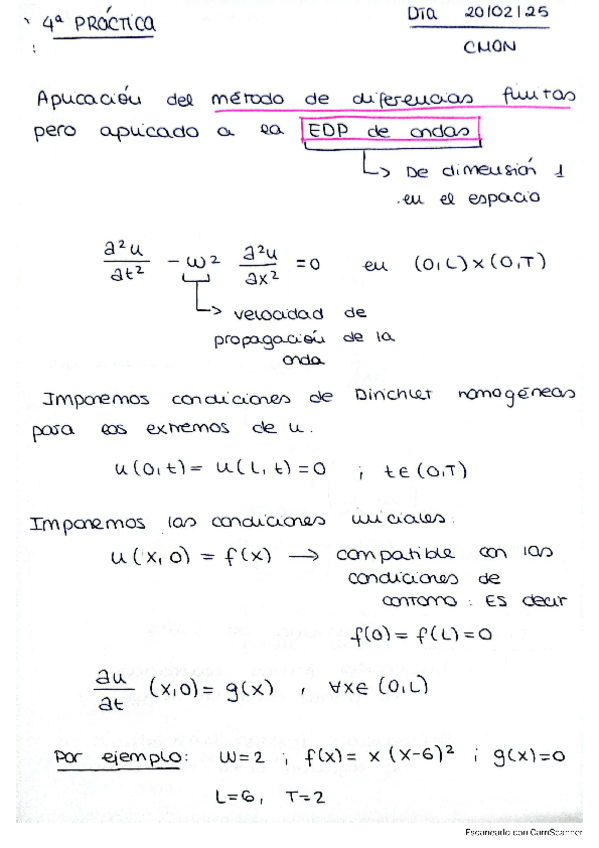 4ª PRÁCTICA
Día 20/02/25
CMON
Aplicación del método de diferencias finitas
pero aplicado a la EDP de ondas
↳ De dimensión 1
en el espacio
∂²u/∂t² - ω² ∂²u/∂x² = 0 en (0,L)×(0,T)
↳ velocidad de
propagación de la
onda
Imponemos condiciones de Dirichlet homogéneas
para los extremos de u.
u(0,t) = u(L,t) = 0 ; t∈(0,T)
Imponemos las condiciones iniciales:
u(x,0) = f(x) → compatible con las
condiciones de
contorno: ES decir
f(0) = f(L) = 0
∂u/∂t (x,0) = g(x) , ∀x∈(0,L)
Por ejemplo: W=2 ; f(x) = x(x-6)² ; g(x)=0
L=6, T=2
Escaneado con CamScanner